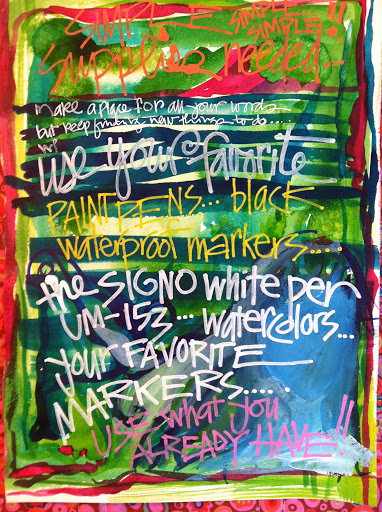 SIMPLE SIMPLE!!
SIMPLE
Supplies needed...
make a place for all your words
but keep finding new things to do....
use your favorite
PAINT PENS... black
waterproof markers.....
the SIGNO white pen
UM-153... watercolors...
your FAVORITE
MARKERS.....
USE what you
ALREADY HAVE!!